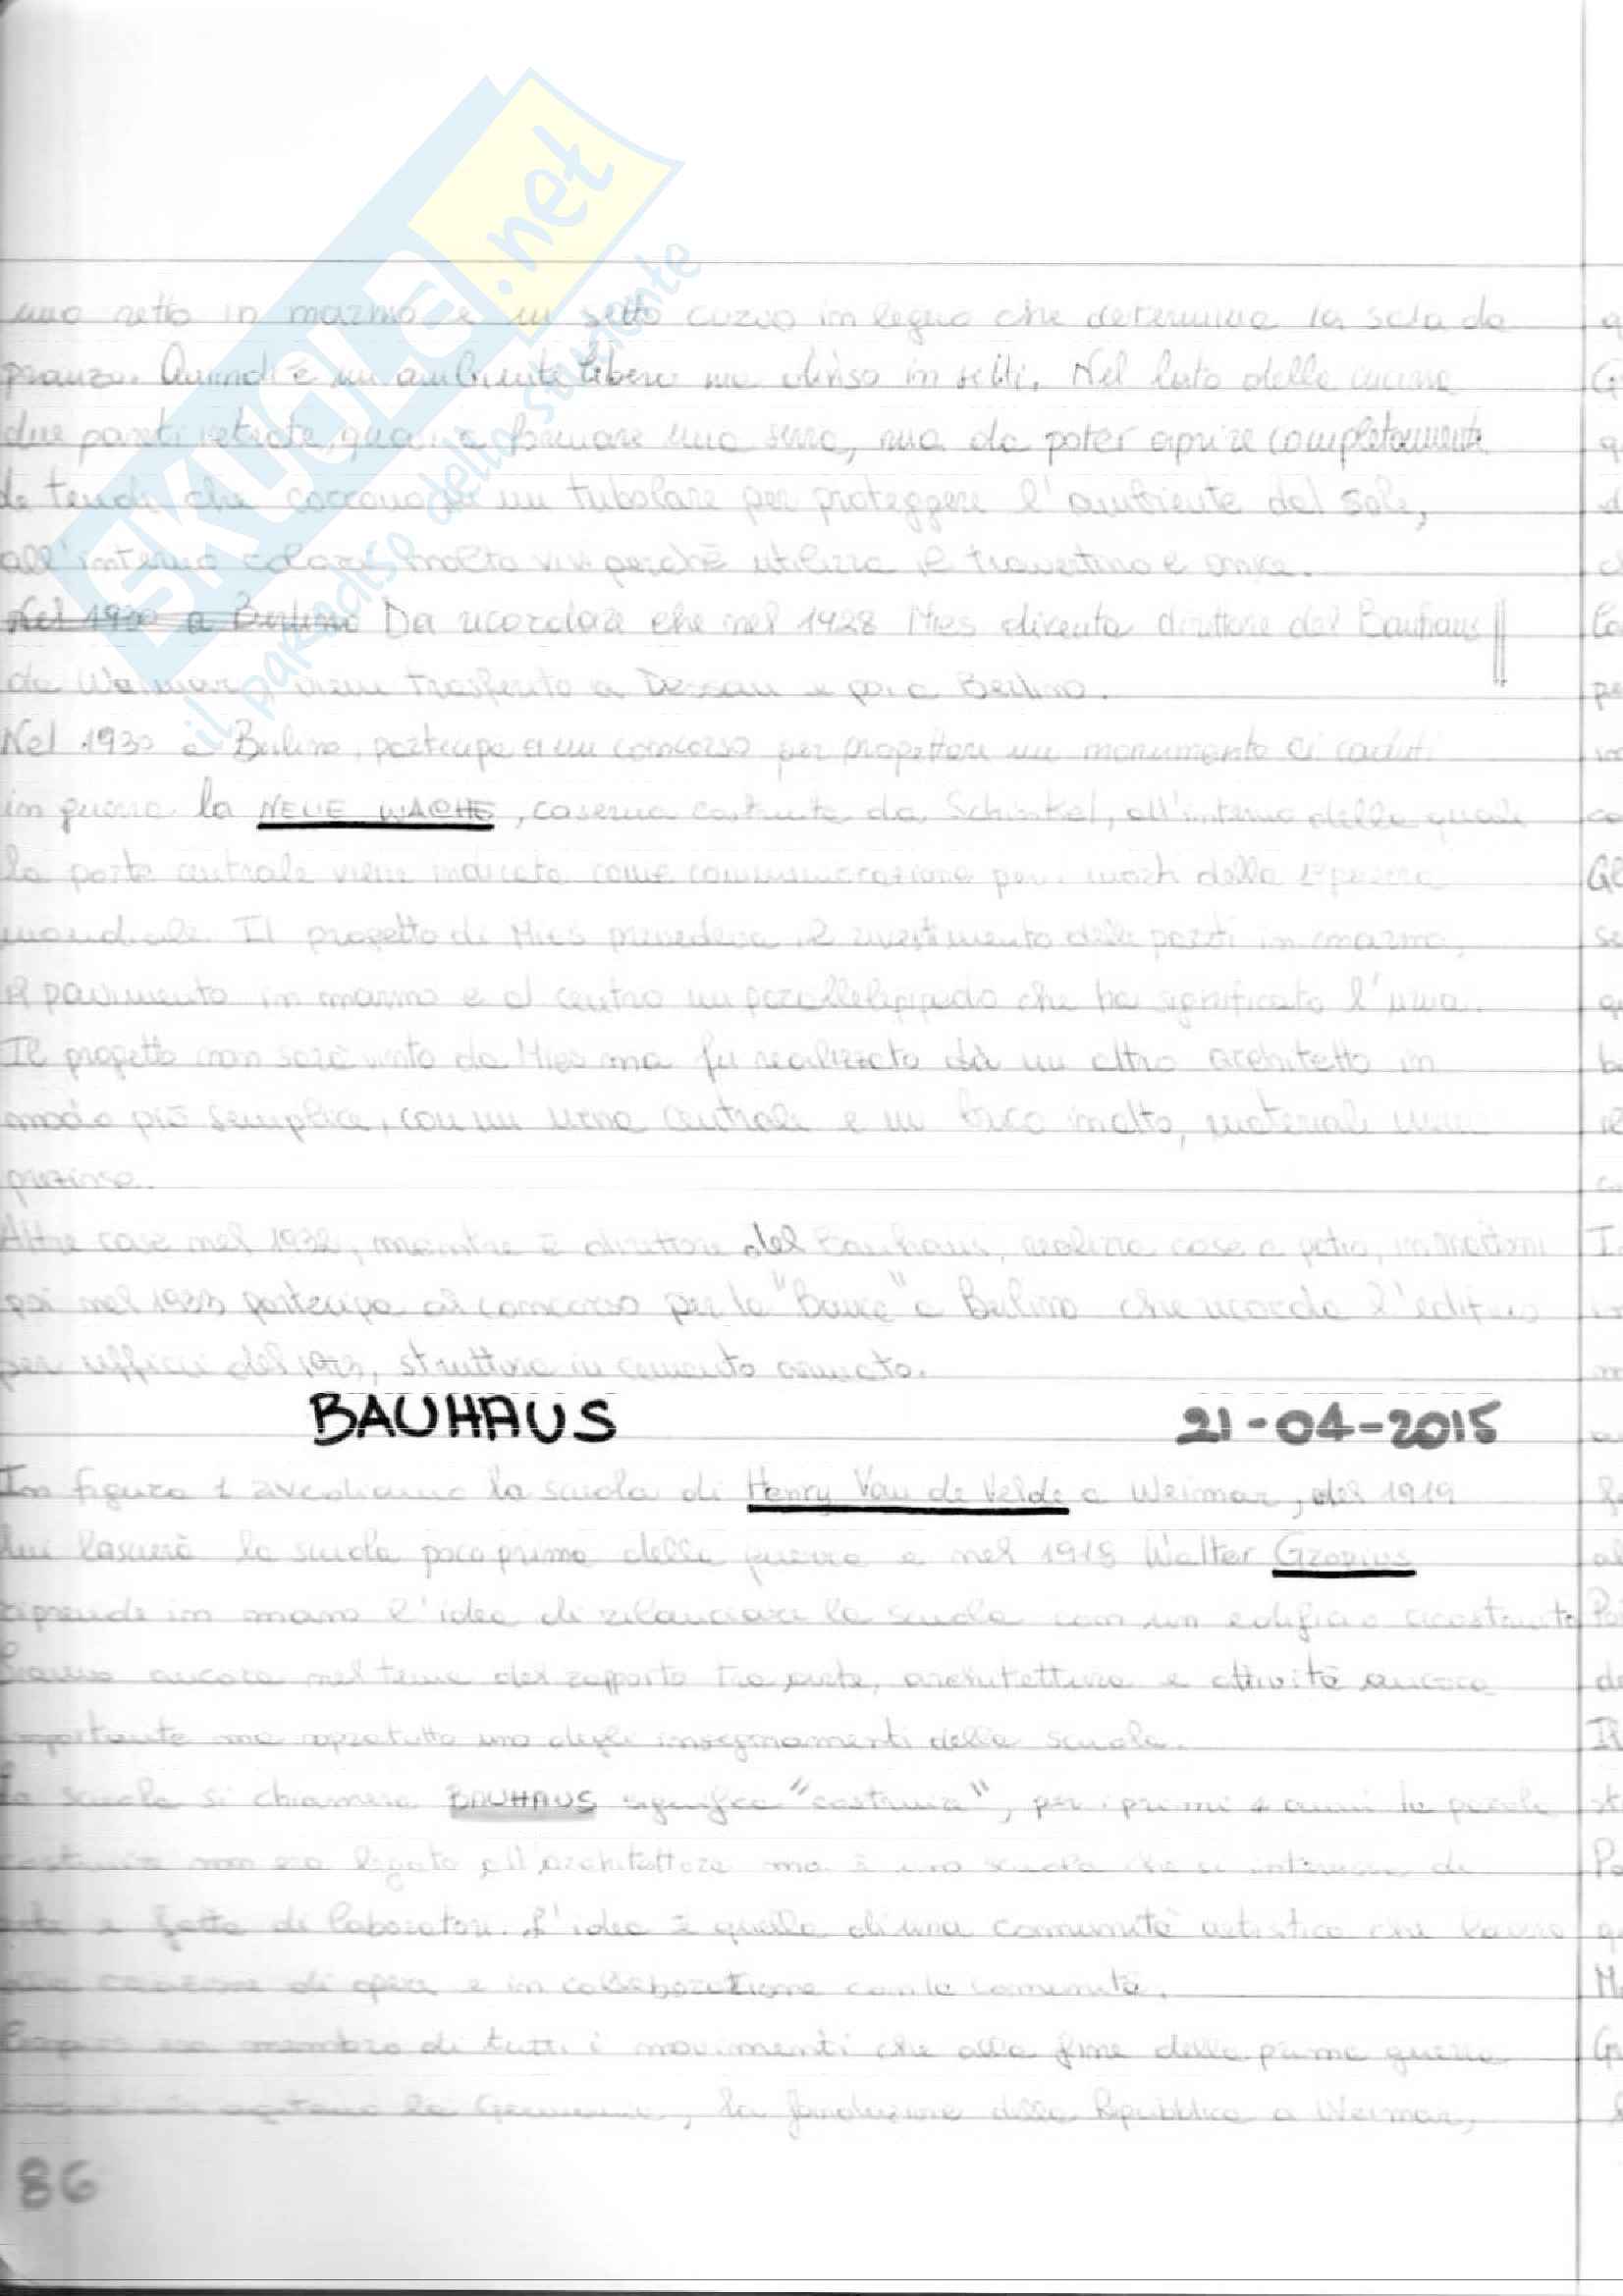 uno retto in marmo e un setto curvo in legno che determina la sala da
pranzo. Quindi è un ambiente libero ma diviso in setti. Nel lato delle cucine
due pareti vetrate, quasi a formare una serra, ma da poter aprire completamente
le tende che corrono in un tubolare per proteggere l'ambiente dal sole,
all'interno colori molto vivi perché utilizza il travertino e onice.
Nel 1930 a Berlino Da ricordare che nel 1928 Mies diventa direttore del Bauhaus
da Weimar, viene trasferito a Dessau e poi a Berlino.
Nel 1930 a Berlino, partecipa a un concorso per progettare un monumento ai caduti
in guerra la NEUE WACHE, caserma costruita da Schinkel, all'interno della quale
la parte centrale viene indicata come commemorazione per i morti della 1ª guerra
mondiale. Il progetto di Mies prevedeva il rivestimento delle pareti in marmo,
il pavimento in marmo e al centro un parallelepipedo che ha significato l'urna.
Il progetto non sarà vinto da Mies ma fu realizzato da un altro architetto in
modo più semplice, con un urna centrale e un buco in alto, materiali meno
preziosi.
Altre case nel 1932, mentre è direttore del Bauhaus, realizza case a patio, in mattoni
poi nel 1933 partecipa al concorso per la "Banca" a Berlino che ricorda l'edificio
per uffici del 1923, struttura in cemento armato.
BAUHAUS 21-04-2015
In figura 1 rivediamo la scuola di Henry Van de Velde a Weimar, del 1919
lui lascerà la scuola poco prima della guerra e nel 1918 Walter Gropius
riprende in mano l'idea di rilanciare la scuola con un edificio ricostruito
Siamo ancora nel tema del rapporto tra arte, architettura e attività ancora
importante ma soprattutto uno degli insegnamenti della scuola.
La scuola si chiamera BAUHAUS significa "costruire", per i primi 4 anni la parola
costruire non era legata all'architettura ma è una scuola che si interessa di
arte e fatta di laboratori. L'idea è quella di una comunità artistica che lavora
alla creazione di opere e in collaborazione con la comunità.
Gropius era membro di tutti i movimenti che alla fine della prima guerra
la Germania, la fondazione della Repubblica a Weimar,
SKUOLA.net
il paradiso dello studente
86